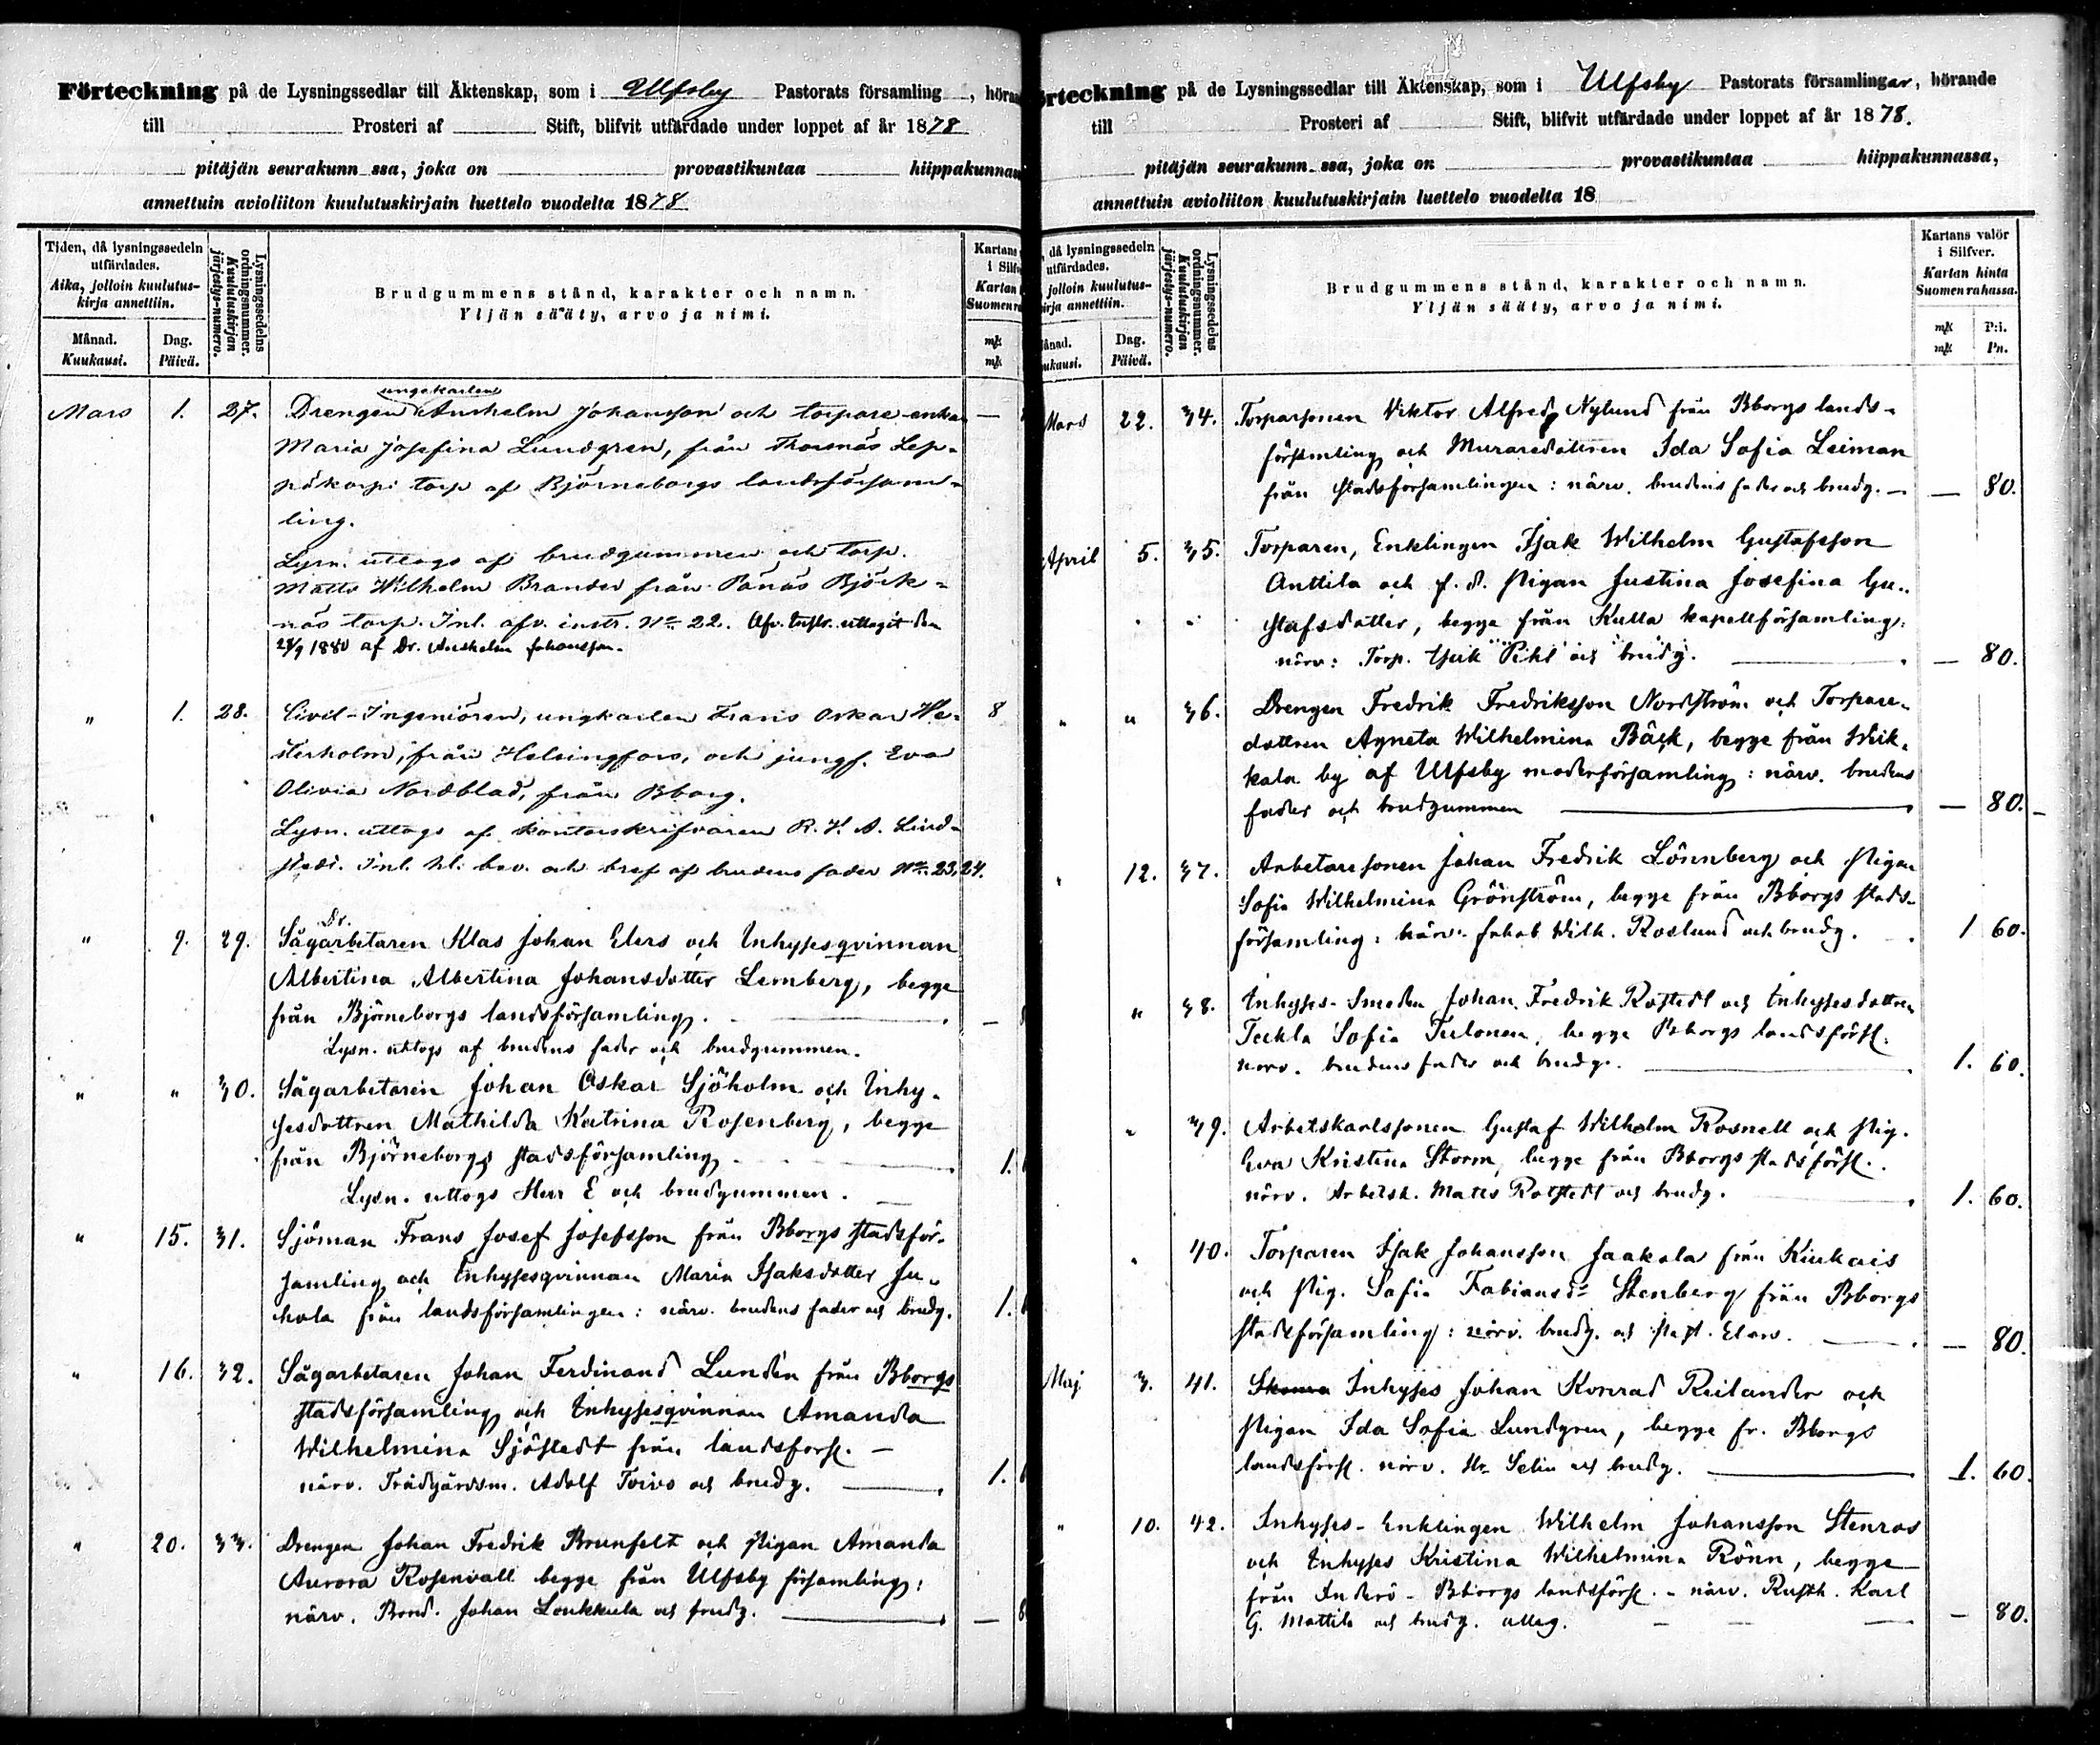 Förteckning på de Lysningssedlar till Äktenskap, som i Ulfsby Pastorats församling, höran
till Prosteri af Stift, blifvit utfärdade under loppet af år 1878
pitäjän seurakunn ssa, joka on provastikuntaa hiippakunnas
annettuin avioliiton kuulutuskirjain luettelo vuodelta 1878
Tiden, då lysningssedeln utfärdades.
Aika, jolloin kuulutus-kirja annettiin.
Månad. Kuukausi.
Dag. Päivä.
Lysningssedelns ordningsnummer.
Kuulutuskirjan järjestys-numero.
Brudgummens stånd, karakter och namn.
Yljän sääty, arvo ja nimi.
Kartans
i Silfv
Kartan
Suomen ra
mk
mk
ungekarlen
Mars 1. 27. Drengen Anshelm Johansson och torpare-enkan —
Maria Josefina Lundgren, från Thornäs Lep-
päkorpi torp af Björneborgs landsförsam-
ling.
Lysn. uttogs af brudgummen och torp.
Matts Wilhelm Brander från Pånäs Björk-
näs torp. Inl. afv. instr. No 22. Afv. Instr. uttagit den
24/9 1880 af Dr. Anshelm Johansson.
" 1. 28. Civil-Ingeniören, ungkarlen Frans Oskar We- 8
sterholm, från Helsingfors, och jungf. Eva
Olivia Nordblad, från Bborg.
Lysn. uttogs af kontorskrifvaren R. H. A. Lind-
stedt. Inl. hl. bev. och bref af brudens fader No 23, 24.
Dr.
" 9. 29. Sågarbetaren Klas Johan Elers och Inhysesqvinnan
Albertina Albertina Johansdotter Lemberg, begge
från Björneborgs landsförsamling. —
Lysn. uttogs af brudens fader och brudgummen.
" " 30. Sågarbetaren Johan Oskar Sjöholm och Inhy-
sesdottren Mathilda Katrina Rosenberg, begge
från Björneborgs stadsförsamling 1.
Lysn. uttogs Herr E och brudgummen.
" 15. 31. Sjöman Frans Josef Josefsson från Bborgs stadsför-
samling och Inhysesqvinnan Maria Isaksdotter Ju-
hola från landsförsamlingen: närv. brudens fader och brudg. 1.
" 16. 32. Sågarbetaren Johan Ferdinand Lundén från Bborgs
stadsförsamling och Inhysesqvinnan Amanda
Wilhelmina Sjöstedt från landsförs. —
närv. Trädgårdsm. Adolf Toivo och brudg. 1.
" 20. 33. Drengen Johan Fredrik Brunfelt och Pigan Amanda
Aurora Rosenvall begge från Ulfsby församling:
närv. Bond. Johan Loukkula och brudg. — 8
örteckning på de Lysningssedlar till Äktenskap, som i Ulfsby Pastorats församlingar, hörande
till Prosteri af Stift, blifvit utfärdade under loppet af år 1878.
pitäjän seurakunn ssa, joka on provastikuntaa hiippakunnassa,
annettuin avioliiton kuulutuskirjain luettelo vuodelta 18
, då lysningssedeln utfärdades.
jolloin kuulutus-
irja annettiin.
ånad. ukausi.
Dag. Päivä.
Lysningssedelns ordningsnummer.
Kuulutuskirjan järjestys-numero.
Brudgummens stånd, karakter och namn.
Yljän sääty, arvo ja nimi.
Kartans valör
i Silfver.
Kartan hinta
Suomen rahassa.
mk P:i.
mk Pn.
Mars 22. 34. Torparsonen Viktor Alfred Nylund från Bborgs lands-
församling och Muraredottren Ida Sofia Leiman
från stadsförsamlingen: närv. brudens fader och brudg. — — 80.
April 5. 35. Torparen, Enklingen Isak Wilhelm Gustafsson
Anttila och f. d. Pigan Justina Josefina Gu-
stafsdotter, begge från Kulla kapellförsamling:
närv: Torp. Isak Pihl och brudg. — 80.
" " 36. Drengen Fredrik Fredriksson Nordström och Torpare-
dottren Agneta Wilhelmina Bäck, begge från Weik-
kala by af Ulfsby moderförsamling: närv. brudens
fader och brudgummen — 80.
" 12. 37. Arbetaresonen Johan Fredrik Lönnberg och Pigan
Sofia Wilhelmina Grönström, begge från Bborgs stads-
församling: närv. Jakob Wilh. Roslund och brudg. 1 60.
" 38. Inhyses-Smeden Johan Fredrik Rostedt och Inhysesdottren
Teckla Sofia Tulonen, begge Bborgs landsförs.
närv. brudens fader och brudg. 1. 60.
" 39. Arbetskarlssonen Gustaf Wilhelm Rosnell och Pig.
Eva Kristina Storm, begge från Bborgs stadsförs.
närv. Arbetsk. Matts Rotstedt och brudg. 1. 60.
" 40. Torparen Isak Johansson Jaakola från Kiukais
och Pig. Sofia Fabiansd: Stenberg från Bborgs
stadsförsamling: närv. brudg. och Elers. — 80.
Maj 3. 41. Inhyses Johan Konrad Reilander och
Pigan Ida Sofia Lundgren, begge fr. Bborgs
landsförs. närv. Hr Selin och brudg. 1. 60.
" 10. 42. Inhyses-Enklingen Wilhelm Johansson Stenros
och Inhyses Kristina Wilhelmina Rönn, begge
från Inderö - Bborgs landsförs. - närv. Rusth. Karl
G. Mattila och brudg. — 80.